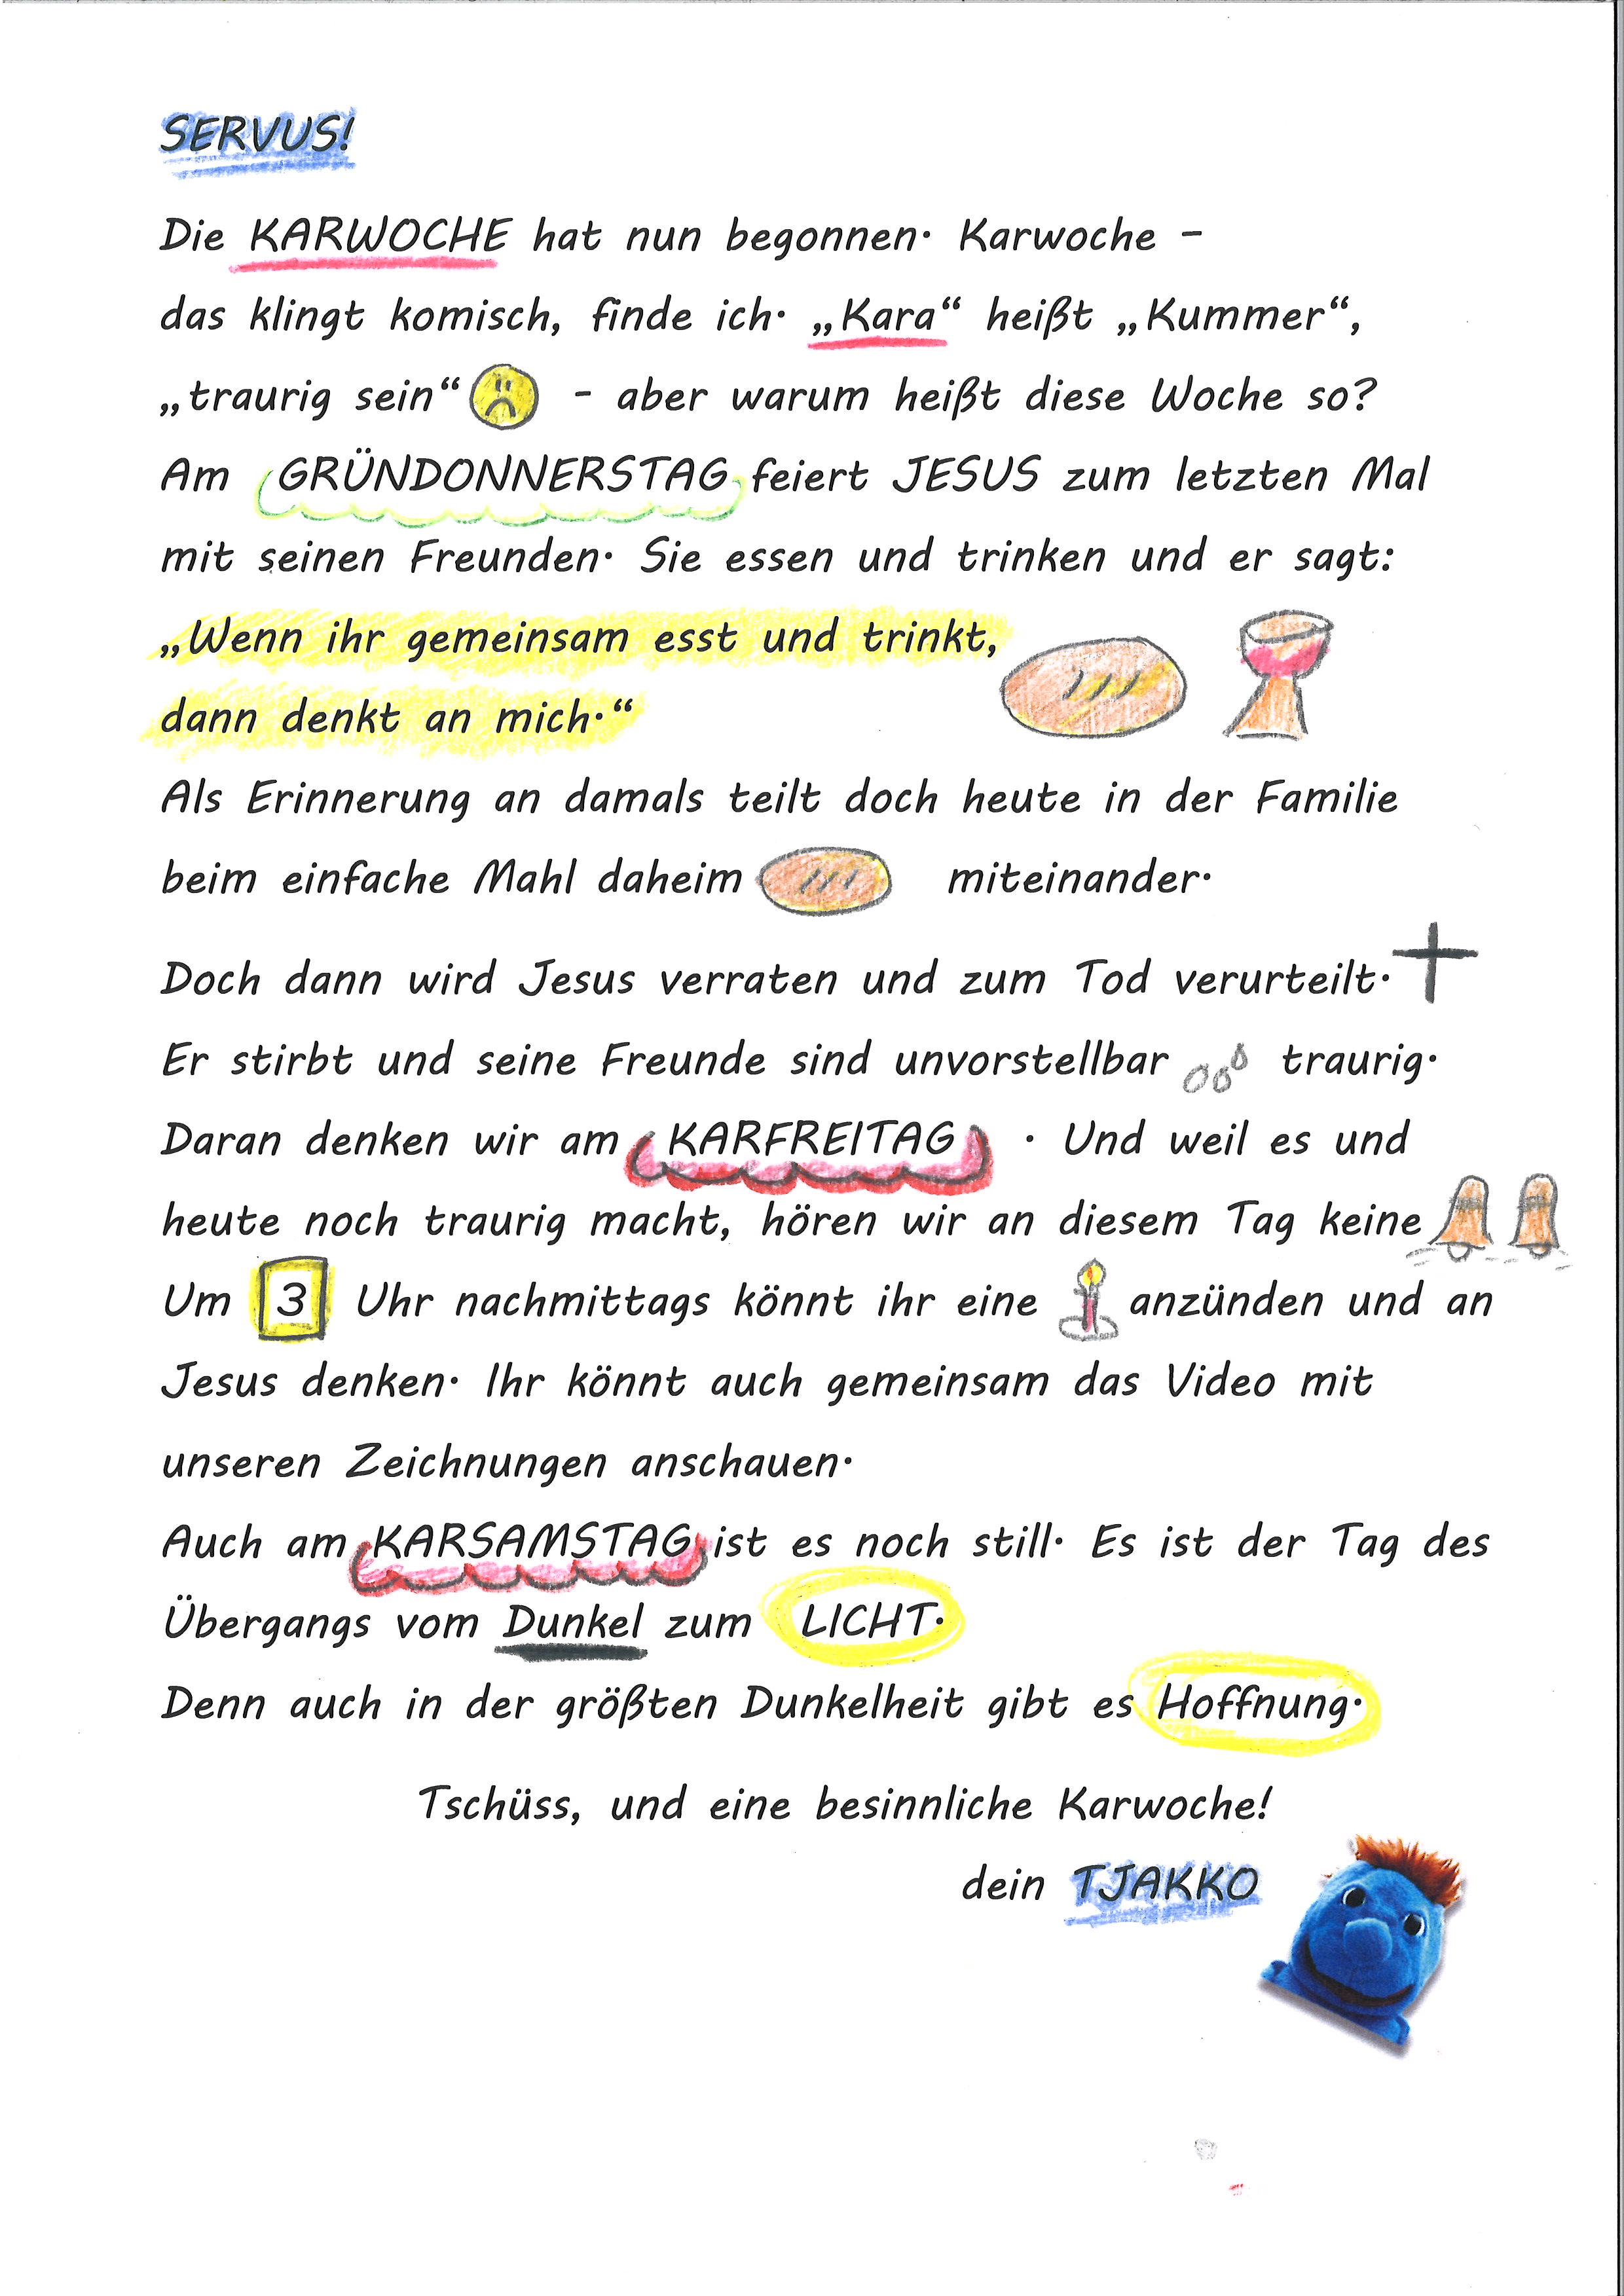 SERVUS!
Die KARWOCHE hat nun begonnen. Karwoche –
das klingt komisch, finde ich. „Kara“ heißt „Kummer“,
„traurig sein“ - aber warum heißt diese Woche so?
Am GRÜNDONNERSTAG feiert JESUS zum letzten Mal
mit seinen Freunden. Sie essen und trinken und er sagt:
„Wenn ihr gemeinsam esst und trinkt,
dann denkt an mich.“
Als Erinnerung an damals teilt doch heute in der Familie
beim einfache Mahl daheim miteinander.
Doch dann wird Jesus verraten und zum Tod verurteilt.
Er stirbt und seine Freunde sind unvorstellbar traurig.
Daran denken wir am KARFREITAG . Und weil es und
heute noch traurig macht, hören wir an diesem Tag keine
Um 3 Uhr nachmittags könnt ihr eine anzünden und an
Jesus denken. Ihr könnt auch gemeinsam das Video mit
unseren Zeichnungen anschauen.
Auch am KARSAMSTAG ist es noch still. Es ist der Tag des
Übergangs vom Dunkel zum LICHT.
Denn auch in der größten Dunkelheit gibt es Hoffnung.
Tschüss, und eine besinnliche Karwoche!
dein TJAKKO